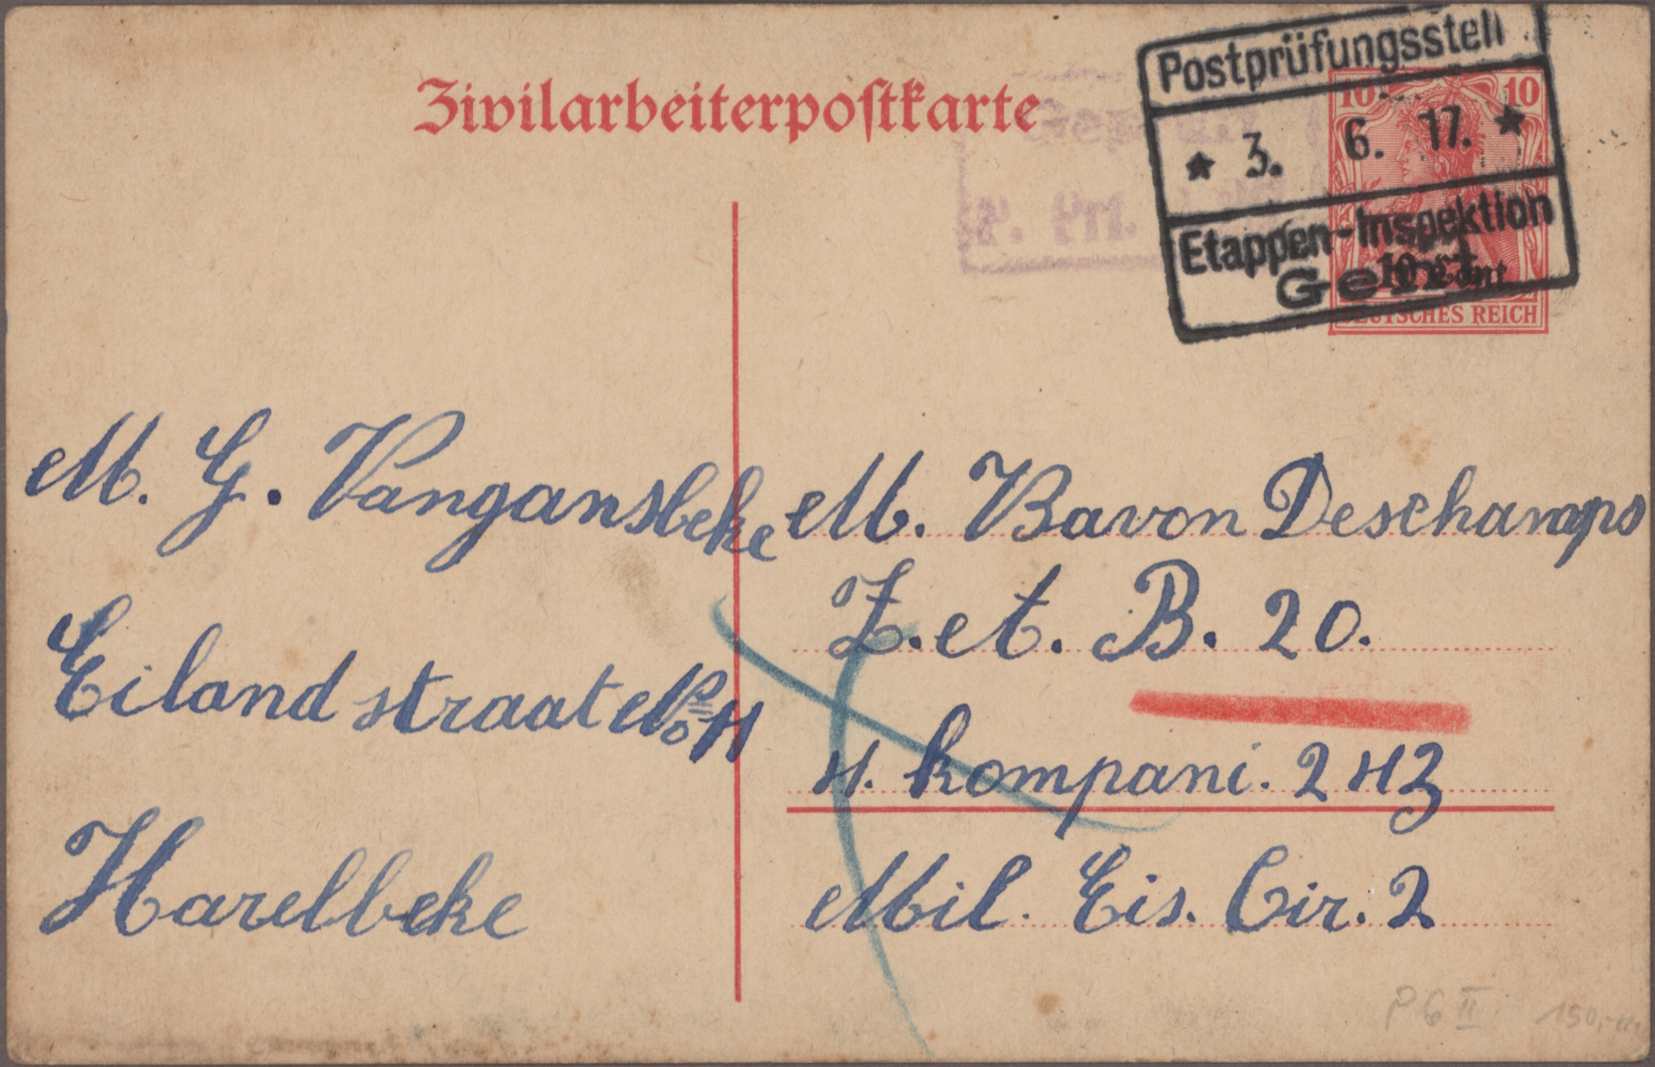 Zivilarbeiterpostkarte
Postprüfungsstell
* 3. 6. 17. *
Etappen-Inspektion
Gent
10 10
10 Cent
DEUTSCHES REICH
P. Prf.
M. G. Vangansbeke
Eilandstraat No 4
Harelbeke
M. Bavon Deschamps
Z. et. B. 20.
4. kompani. 243
Mil. Eis. Cir. 2
P 6 II
150,-